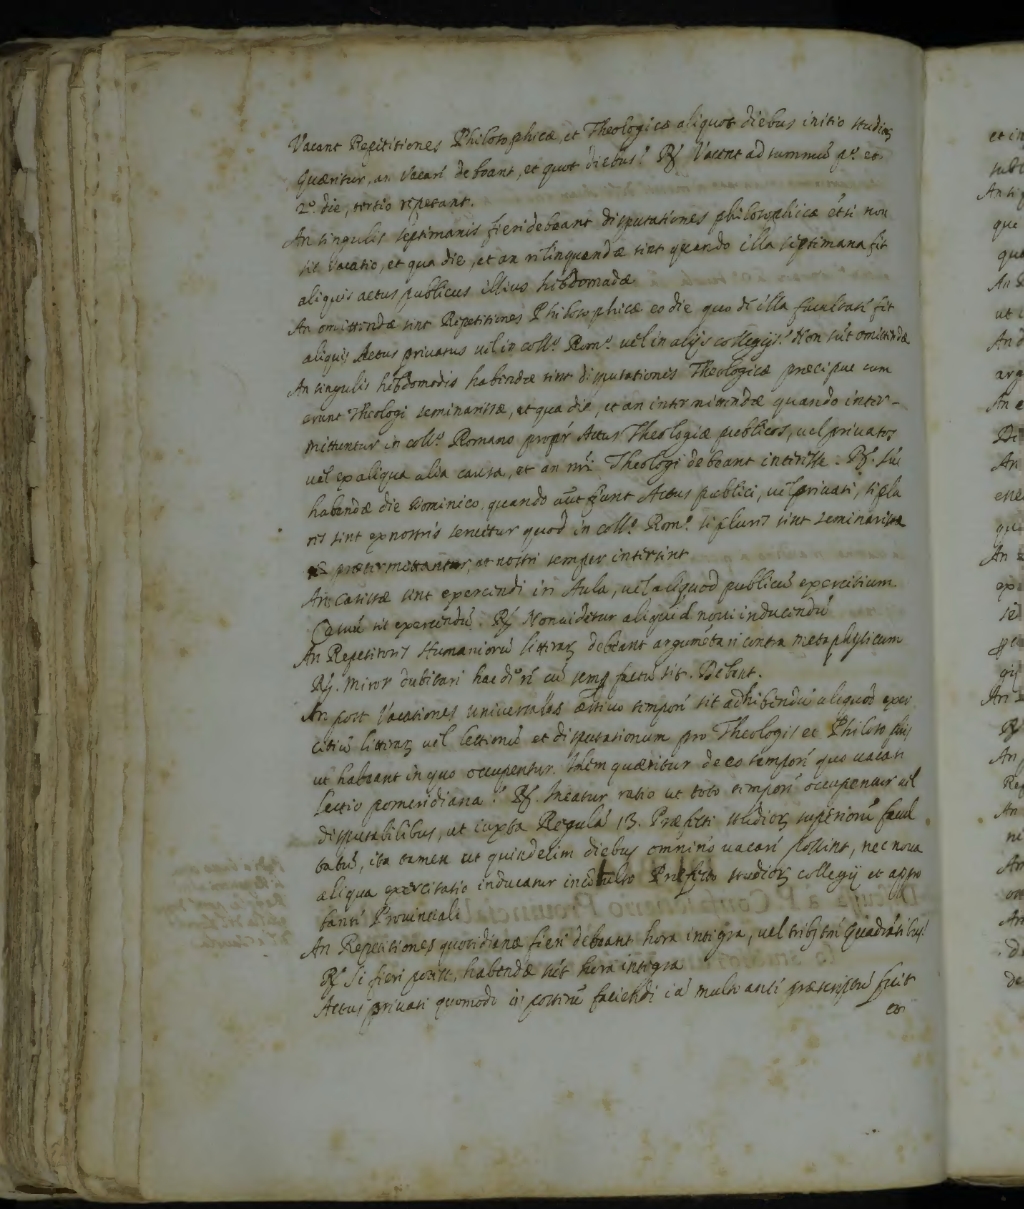 Vacant Repetitiones Philosophicæ, et Theologicæ aliquot diebus initio studioꝝ
Quæritur, an vacari debeant, et quot diebus? R/. Vacent ad summũ p.º et
2.º die, tertio repetant.
An singulis septimanis fieri debeant disputationes philosophicæ etsi non
sit vacatio, et qua die, et an relinquendæ sint quando illa septimana fit
aliquis actus publicus illius hebdomadæ
An omittendæ sint Repetitiones Philosophicæ eo die quo illa facultati fit
aliquis Actus privatus vel in coll.º Rom.º vel in alijs collegijs? Non sũt omittendæ
An singulis hebdomadis habendæ sint disputationes Theologicæ præcipue cum
erunt Theologi seminaristæ, et qua die, et an intermittendæ quando inter-
mittuntur in coll.º Romano propr̃ Actus Theologiæ publicos, vel privatos
vel ex aliqua alia causa, et an nr̃i Theologi debeant interesse. R/.
habendæ die Dominico, quando aũt fiunt Actus publici, vel privati, si plu
res sint ex nostris servetur quod in coll.º Rom.º si plures sint seminaristæ
prætermittantur, et nostri semper intersint
An Casistæ sint exercendi in Aula, vel aliquod publicũ exercitium
Casuũ sit exercendũ. R/. Non videtur aliquid novi inducendũ
An Repetitores Humaniorũ litteraꝝ debeant argumẽtari contra metaphysicum
R/. Miror dubitari hac de re cũ semp factũ sit. Debent.
An post Vacationes universales æstivo tempore sit adhibendũ aliquod exer
citiũ litteraꝝ vel lectionũ et disputationum pro Theologis et Philosophis
ut habeant in quo occupentur. Item quæritur de eo tempore quo vacat
lectio pomeridiana? R/. Ineatur ratio ut toto tempore occupentur vel
disputabilibus, ut iuxta Regulã 13. Præfecti studioꝝ superiorũ facul
tatũ, ita tamen ut quindecim diebus omnino vacare possint, nec nova
aliqua exercitatio inducatur inconsulto Præfecto studioꝝ collegij et appro
bante Provinciali
An Repetitiones quotidianæ fieri debeant hora integra, vel tribus Quadrantibus?
R/. Si fieri possit, habendæ sũt hora integra
Actus privati quomodo in posterũ faciendi iã multo ante præscriptũ fuit